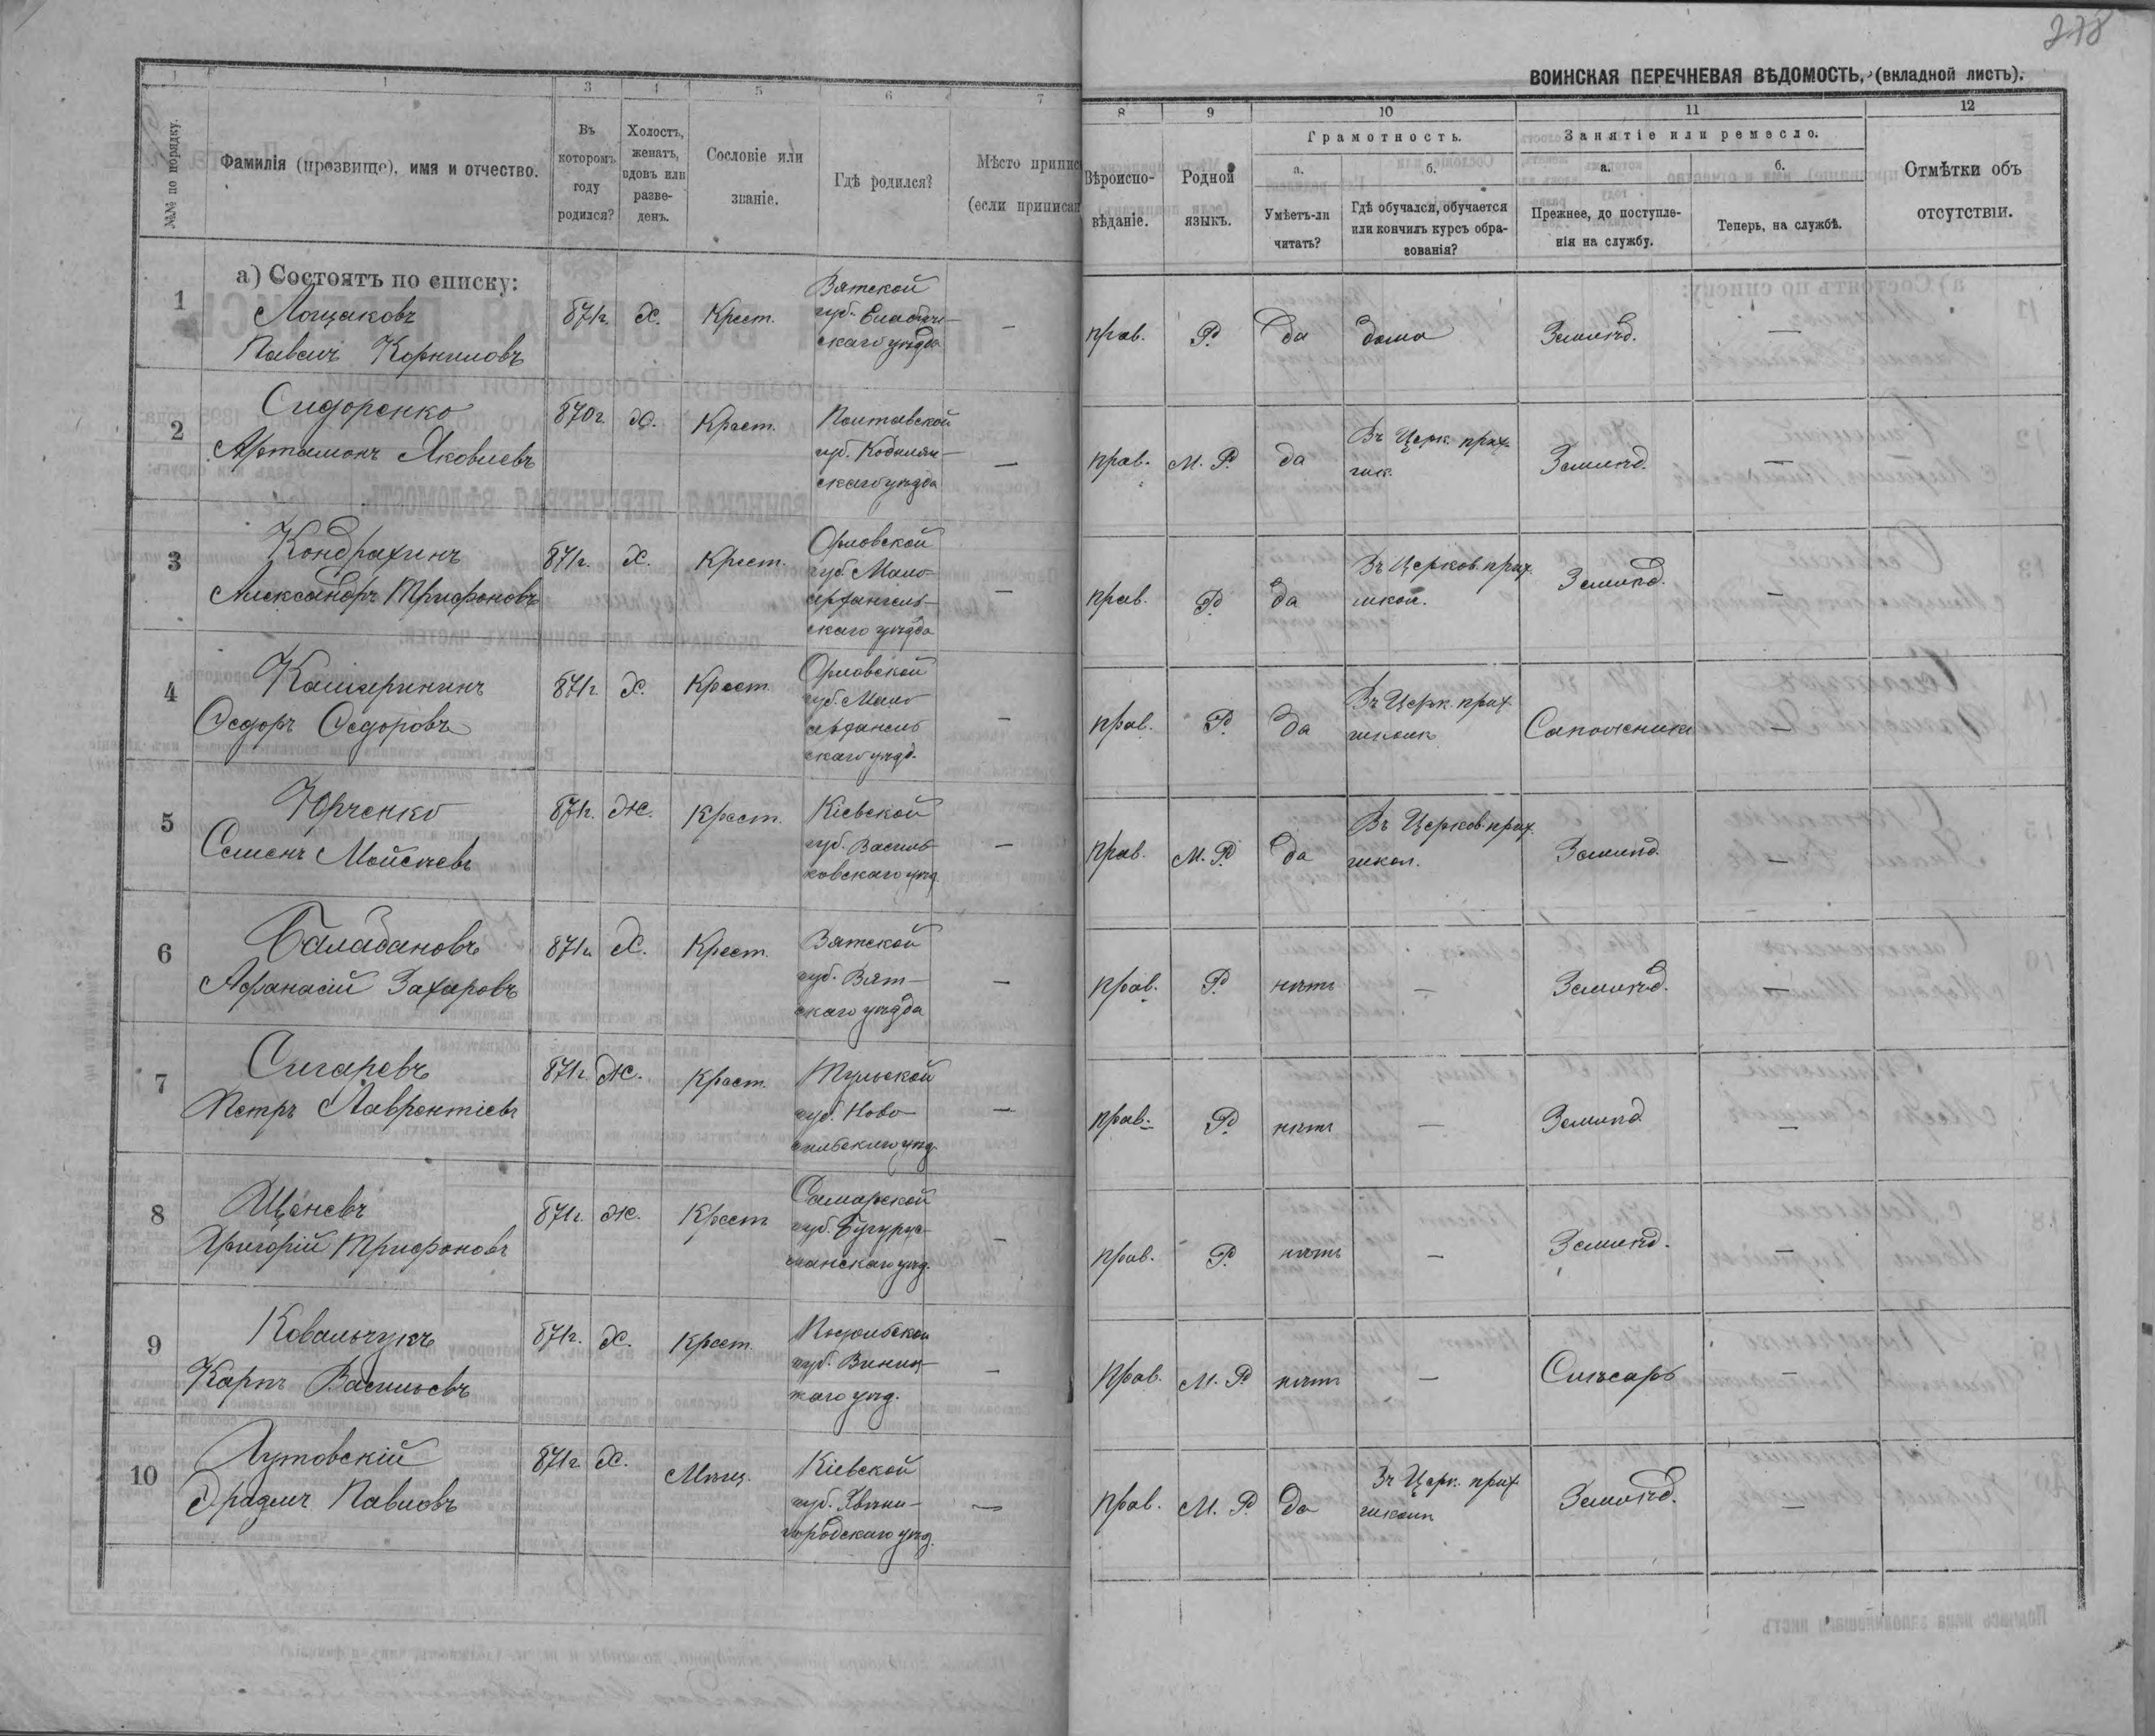 278
ВОИНСКАЯ ПЕРЕЧНЕВАЯ ВѢДОМОСТЬ, (вкладной листъ).
1 1 3 4 5 6 7 8 9 10 11 12
№№ по порядку.
Фамилія (прозвище), имя и отчество.
Въ
которомъ
году
родился?
Холостъ,
женатъ,
вдовъ или
разве-
денъ.
Сословіе или
званіе.
Гдѣ родился?
Мѣсто припис
(если приписан
Вѣроиспо-
вѣданіе.
Родной
языкъ.
Грамотность.
а.
Умѣетъ-ли
читать?
б.
Гдѣ обучался, обучается
или кончилъ курсъ обра-
зованія?
Занятіе или ремесло.
а.
Прежнее, до поступле-
нія на службу.
б.
Теперь, на службѣ.
Отмѣтки объ
отсутствіи.
а) Состоятъ по списку:
1
Лощаковъ
Павелъ Корниловъ
871г. Х. Крест.
Вятской
губ. Елабуж-
скаго уѣзда
—
прав. Р. да дома Земледѣл. —
2
Сидоренко
Артамонъ Яковлевъ
870г. Х. Крест.
Полтавской
губ. Кобеляк-
скаго уѣзда
—
прав. М. Р. да
Въ Церк. прих.
шк.
Земледѣл. —
3
Кондрахинъ
Александръ Трифоновъ
871г. Х. Крест.
Орловской
губ. Мало-
архангель-
скаго уѣзда
—
прав. Р. да
Въ Церков. прих.
школ.
Земледѣл. —
4
Кашеринъ
Ѳедоръ Ѳедоровъ
871г. Х. Крест.
Орловской
губ. Мало
архангель
скаго уѣзд.
—
прав. Р. да
Въ Церк. прих.
школѣ
Сапожникъ —
5
Юрченко
Семенъ Мойсеевъ
871г. Ж. Крест.
Кіевской
губ. Василь-
ковскаго уѣзд.
—
прав. М. Р. да
Въ Церков. прих.
школ.
Земледѣл. —
6
Балабановъ
Афанасій Захаровъ
871г. Х. Крест.
Вятской
губ. Вят-
скаго уѣзда
—
прав. Р. нѣтъ — Земледѣл. —
7
Сигаревъ
Петръ Лаврентіевъ
871г. Ж. Крест.
Тульской
губ. Ново-
сильскаго уѣзд.
—
прав. Р. нѣтъ — Земледѣл. —
8
Щеневъ
Григорій Трифоновъ
871г. Ж. Крест.
Самарской
губ. Бугурус-
ланскаго уѣзд.
—
прав. Р. нѣтъ — Земледѣл. —
9
Ковальчукъ
Карпъ Васильевъ
871г. Х. Крест.
Подольской
губ. Винниц-
каго уѣзд.
—
прав. М. Р. нѣтъ — Слесарь —
10
Лутовскій
Павловъ
871г. Х. Мѣщ.
Кіевской
губ. Звѣни-
городскаго уѣзд.
—
прав. М. Р. да
Въ Церк. прих.
школѣ
Земледѣл. —